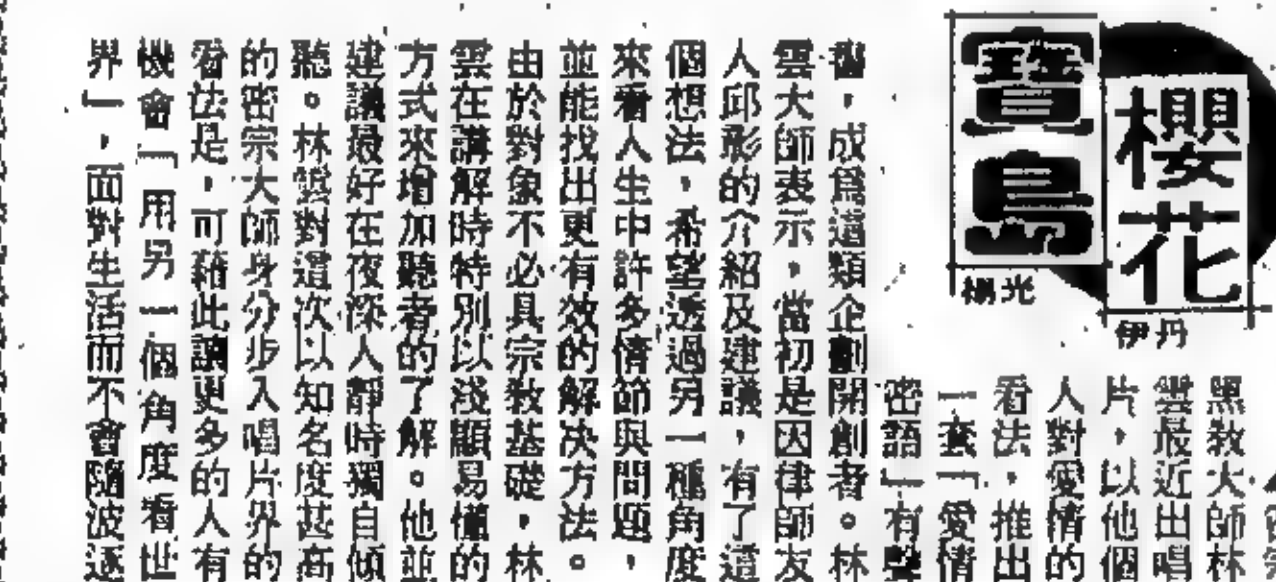 櫻花
伊丹
寶島
楊光
黑教大師林
雲最近出唱
片，以他個
人對愛情的
看法，推出
一套「愛情
密語」有聲
書，成爲這類企劃開創者。林
雲大師表示，當初是因律師友
人邱彰的介紹及建議，有了這
個想法，希望透過另一種角度
來看人生中許多情節與問題，
並能找出更有效的解決方法。
由於對象不必具宗教基礎，林
雲在講解時特別以淺顯易懂的
方式來增加聽者的了解。他並
建議最好在夜深人靜時獨自傾
聽。林雲對這次以知名度甚高
的密宗大師身分步入唱片界的
看法是，可藉此讓更多的人有
機會「用另一個角度看世
界」，面對生活而不會隨波逐